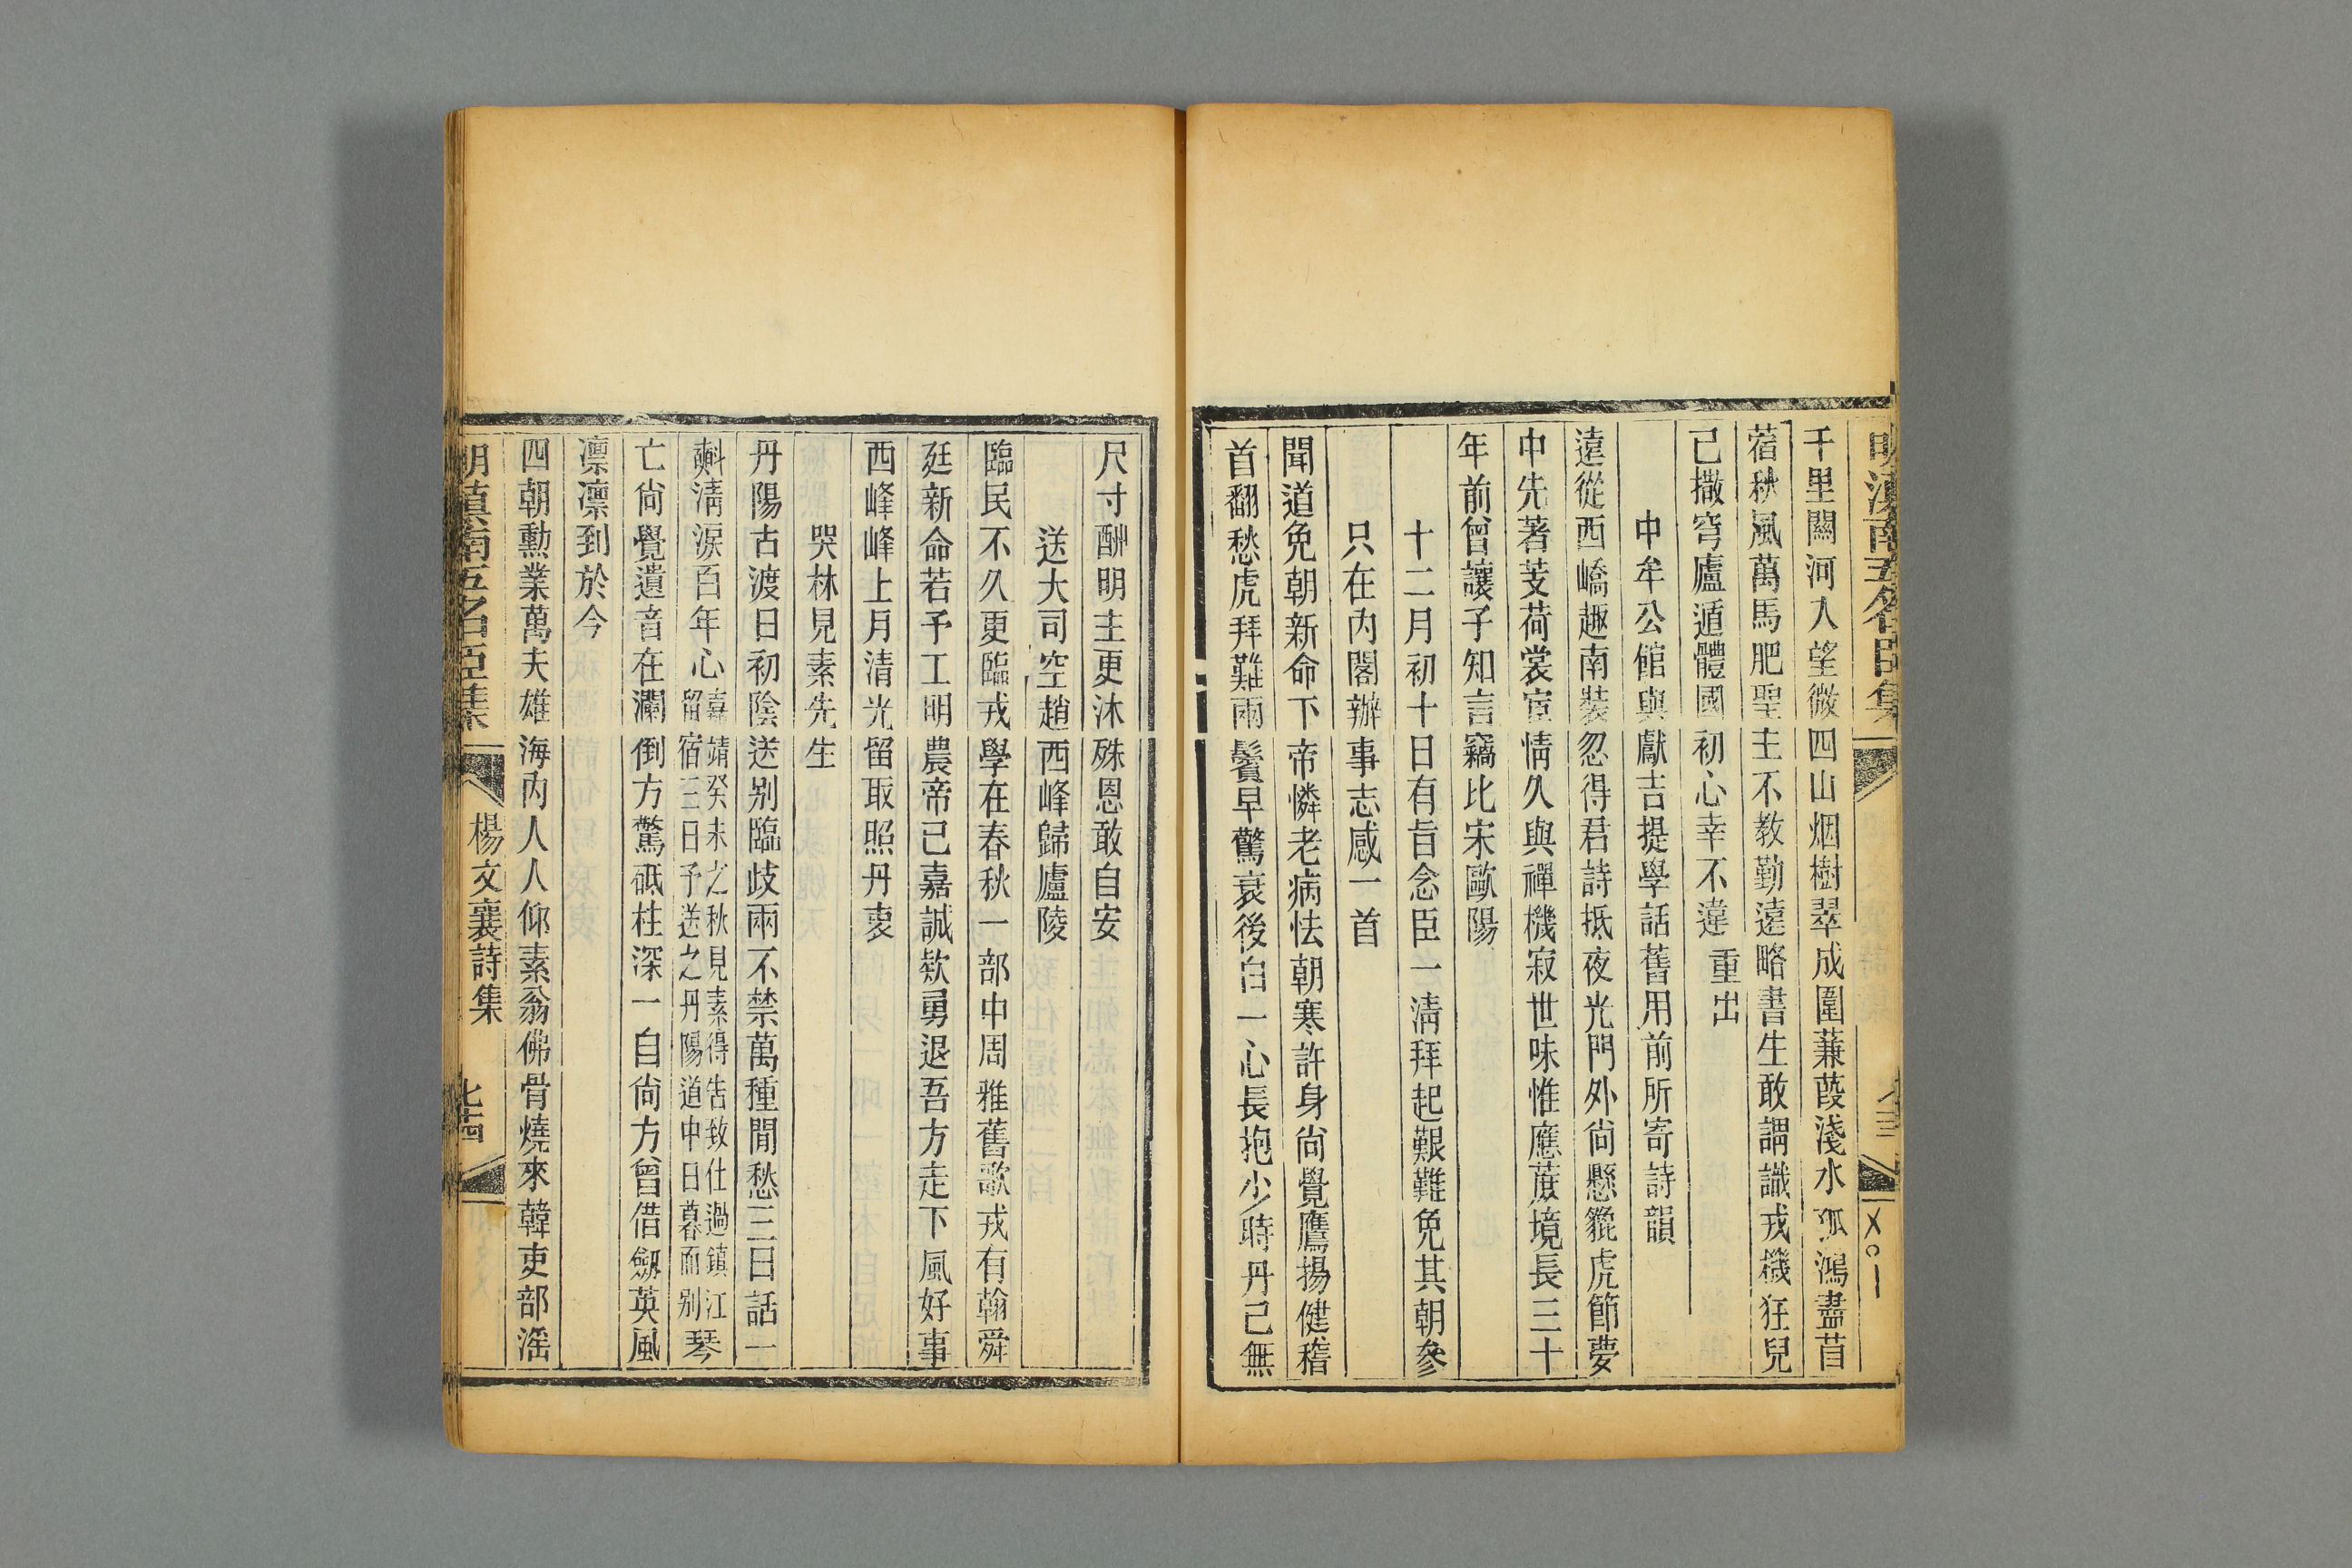 千里關河入望微四山烟樹翠成圍蒹葭淺水孤鴻盡苜
蓿秋風萬馬肥聖主不教勤遠略書生敢謂識戎機狂兒
已撒穹廬遁體國初心幸不違重出
中牟公館與獻吉提學話舊用前所寄詩韻
遠從西嶠趣南裝忽得君詩抵夜光門外尙懸貔虎節夢
中先著芰荷裳宦情久與禪機寂世味惟應蔗境長三十
年前曾讓子知言竊比宋歐陽
十二月初十日有旨念臣一淸拜起艱難免其朝參
只在內閣辦事志感一首
聞道免朝新命下帝憐老病怯朝寒許身尙覺鷹揚健稽
首翻愁虎拜難雨鬢早驚衰後白一心長抱少時丹已無
尺寸酬明主更沐殊恩敢自安
送大司空趙西峰歸廬陵
臨民不久更臨戎學在春秋一部中周雅舊歌戎有翰舜
廷新命若予工明農帝已嘉誠欵勇退吾方走下風好事
西峰峰上月淸光留取照丹衷
哭林見素先生
丹陽古渡日初陰送别臨歧雨不禁萬種閒愁三日話一
㪺淸淚百年心嘉靖癸未之秋見素得吿致仕過鎮江留宿三日予送之丹陽道中日暮而别琴
亡尙覺遺音在瀾倒方驚砥柱深一自尙方曾借劔英風
凛凛到於今
四朝勳業萬夫雄海內人人仰素翁佛骨燒來韓吏部滛
明滇南五名臣集
楊文襄詩集